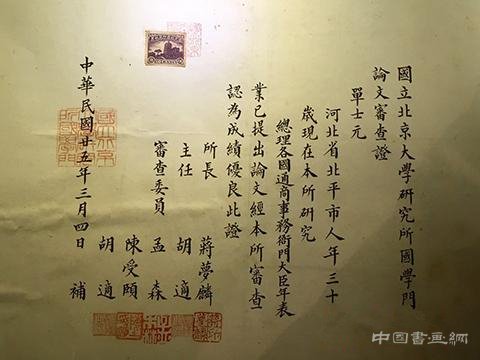 國立北京大學研究所國學門
論文審查證
單士元
河北省北平市人年三十
歲現在本所研究
總理各國通商事務衙門大臣年表
業已提出論文經本所審查
認為成績優良此證
所長 蔣夢麟
主任 胡適
審查委員 孟森
陳受頤
胡適
中華民國廿五年三月四日 補
中国書画網